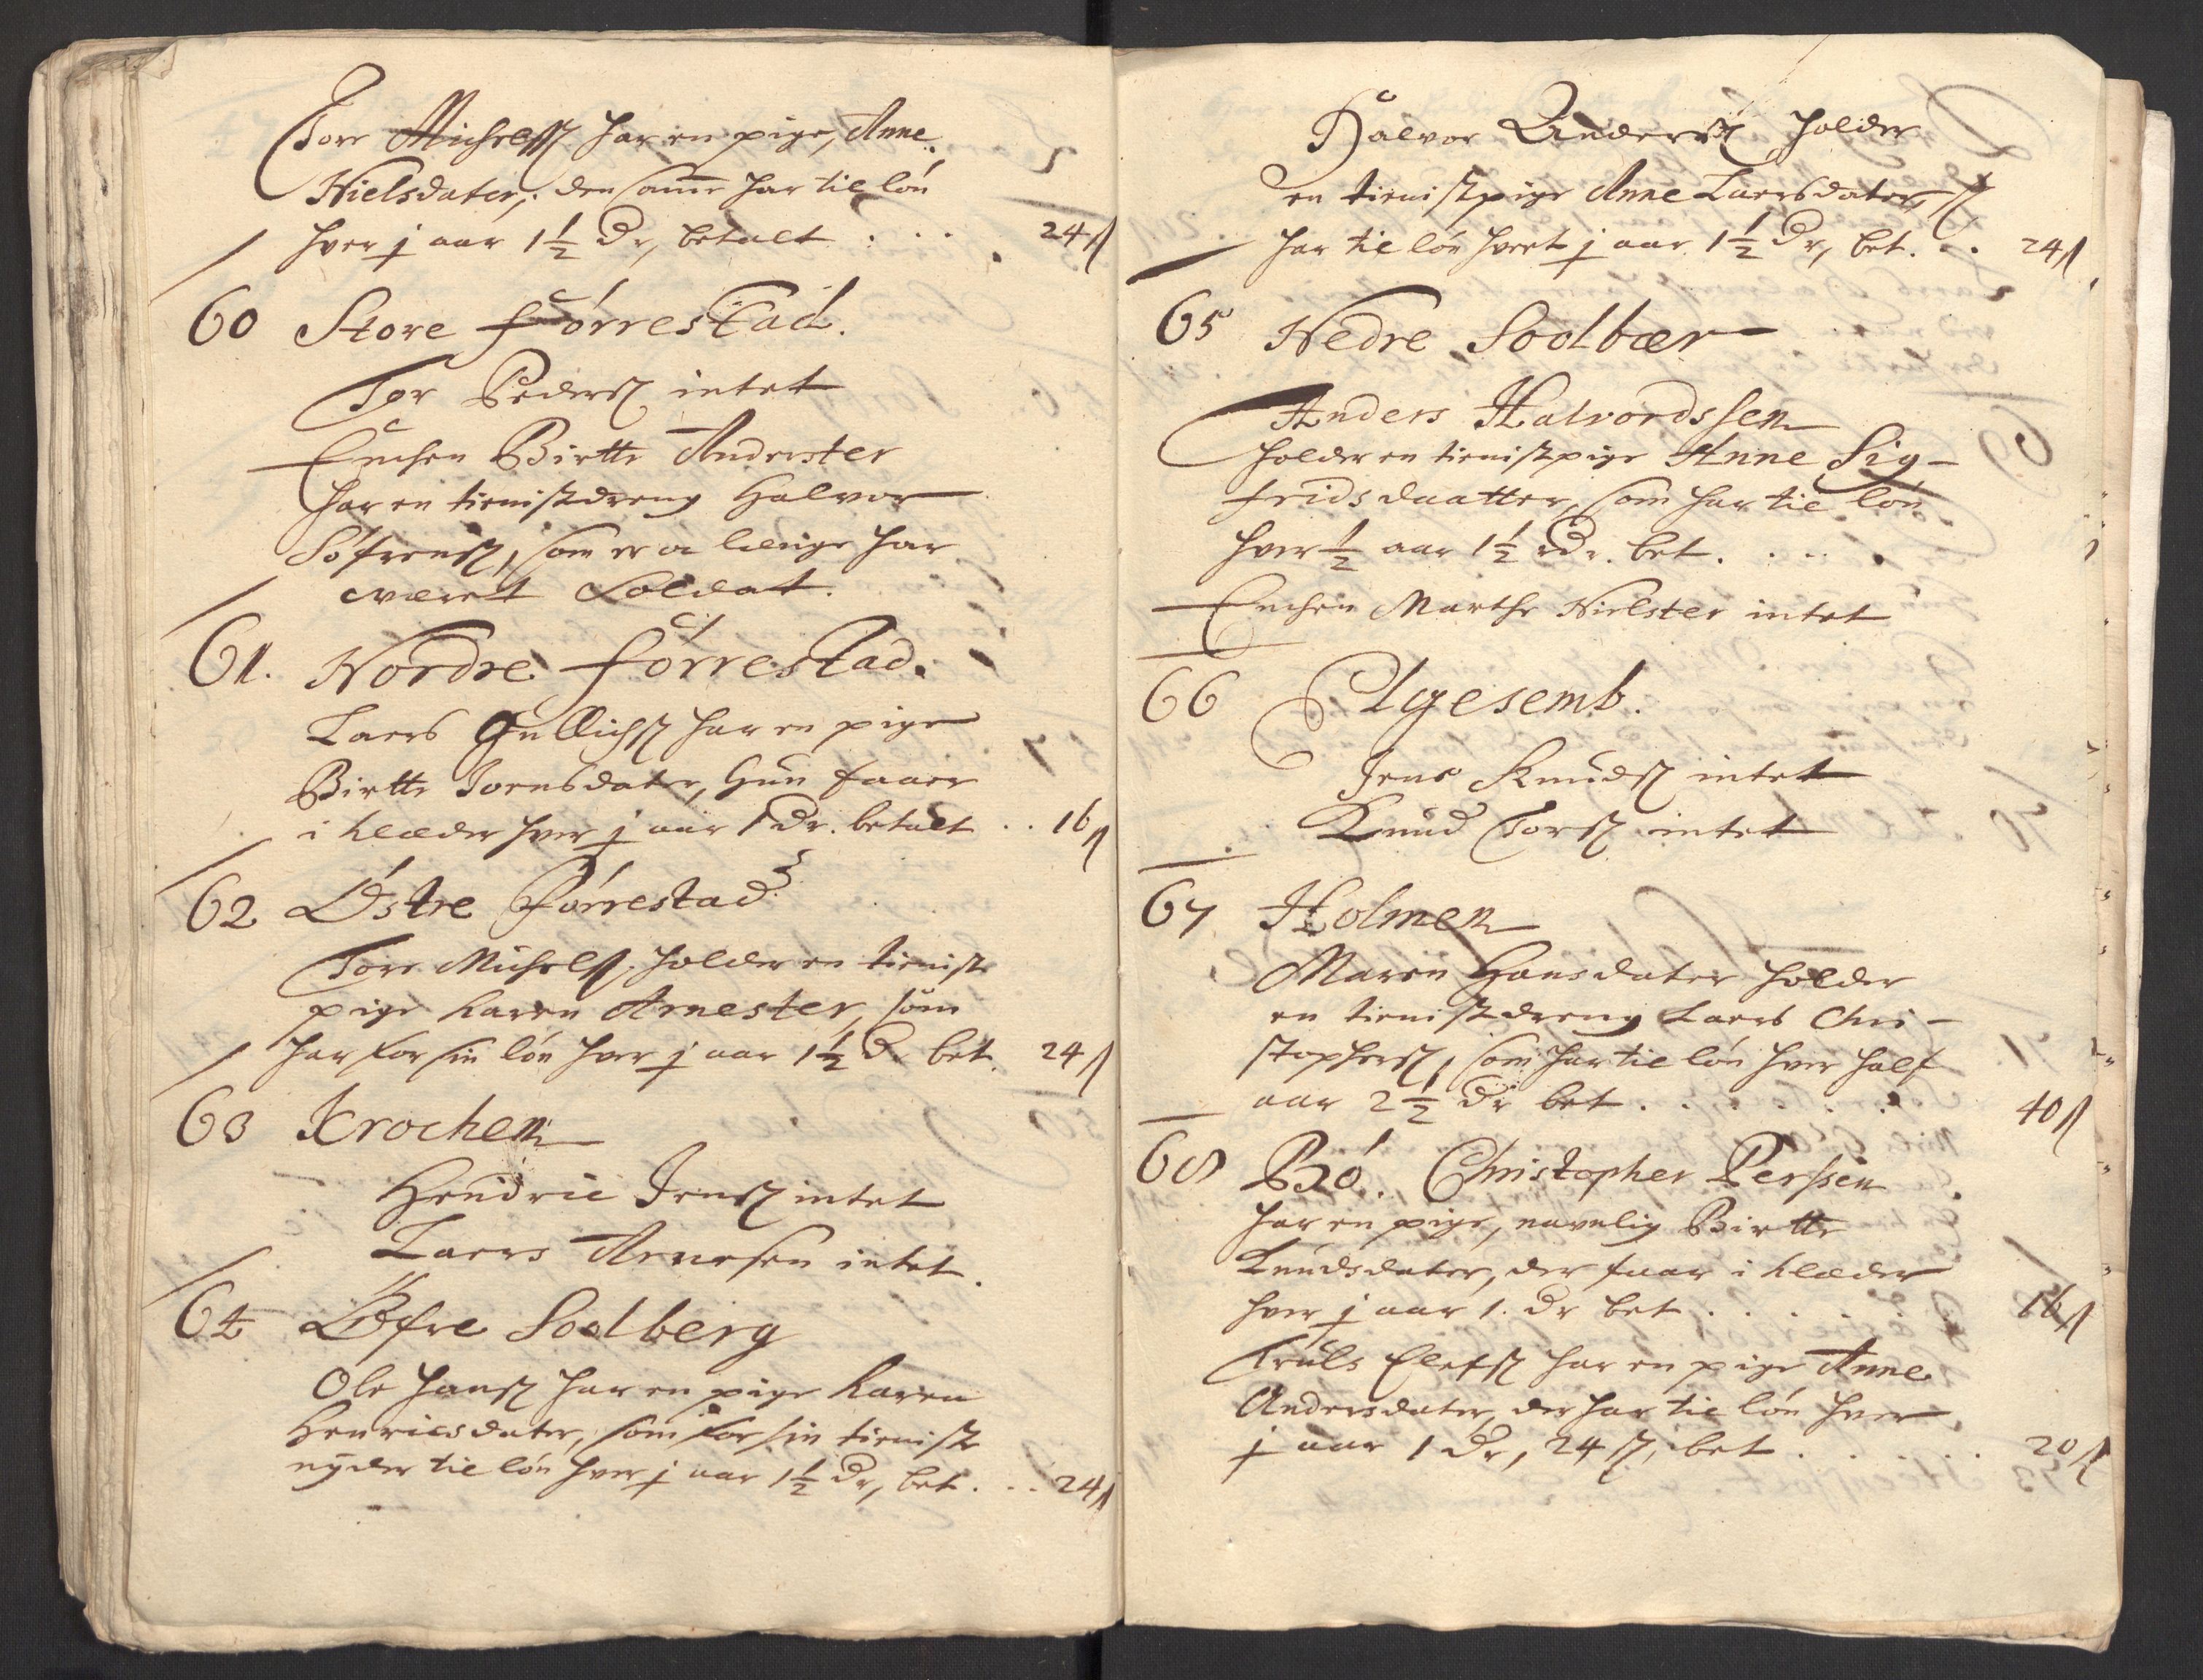 Tore Michelss har en pige, Anne
Nielsdater, den samme har til løn
hver j aar 1½ Dr, betalt . . . 24 ß
60 Store Førrestad.
Tor Pederss intet
Enchen Birtte Anderster
har en tienistdreng Halvor
Søfrenss, som er og lenge har
været Soldat.
61. Nordre førrestad.
Laers Gullichss har en pige
Birtte Joensdater, hun faaer
i klæder hver j aar 1 Dr. betalt . . 16 ß
62 Østre Førrestad
Tore Michelss. holder en tienist
pige Karen Arnester, som
har for sin løn hver j aar 1½ Dr bet. 24 ß
63 Krochen
Hendric Jenss intet
Laers Arnesen intet.
64 Øfre Soelberg
Ole Hanss har en pige Karen
Henricsdater, som for sin tieniste
nyder til løn hver j aar 1½ Dr, bet. . . 24 ß
Halvor Anderss holder
en tienistpige Anne Laersdater,
har til løn hvert j aar 1½ Dr, bet. . . 24 ß
65 Nedre Soolbær
Anders Halvordssen
holder en tienistpige Anne Sig-
fridsdaatter, som har til løn
hver ½ aar 1½ rdr. bet. . . .
Enchen Marthe Nielster intet
66 Elgesemb.
Jens Knudss intet
Knud Torss intet
67 Holmen
Maren Hansdater holder
en tienistdreng Laers Chri-
stopherss, som har til løn hver half
aar 2½ Dr bet. . . . . . 40 ß
68 Bø. Christopher Perssen
har en pige, navnlig Birtte
Knudsdater, der faar i klæder
hver j aar 1. Dr bet . . . . 16 ß
Truls Elefss har en pige Anne
Andersdater, der har til løn hver
j aar 1 Dr, 24 ß, bet . . . . 20 ß